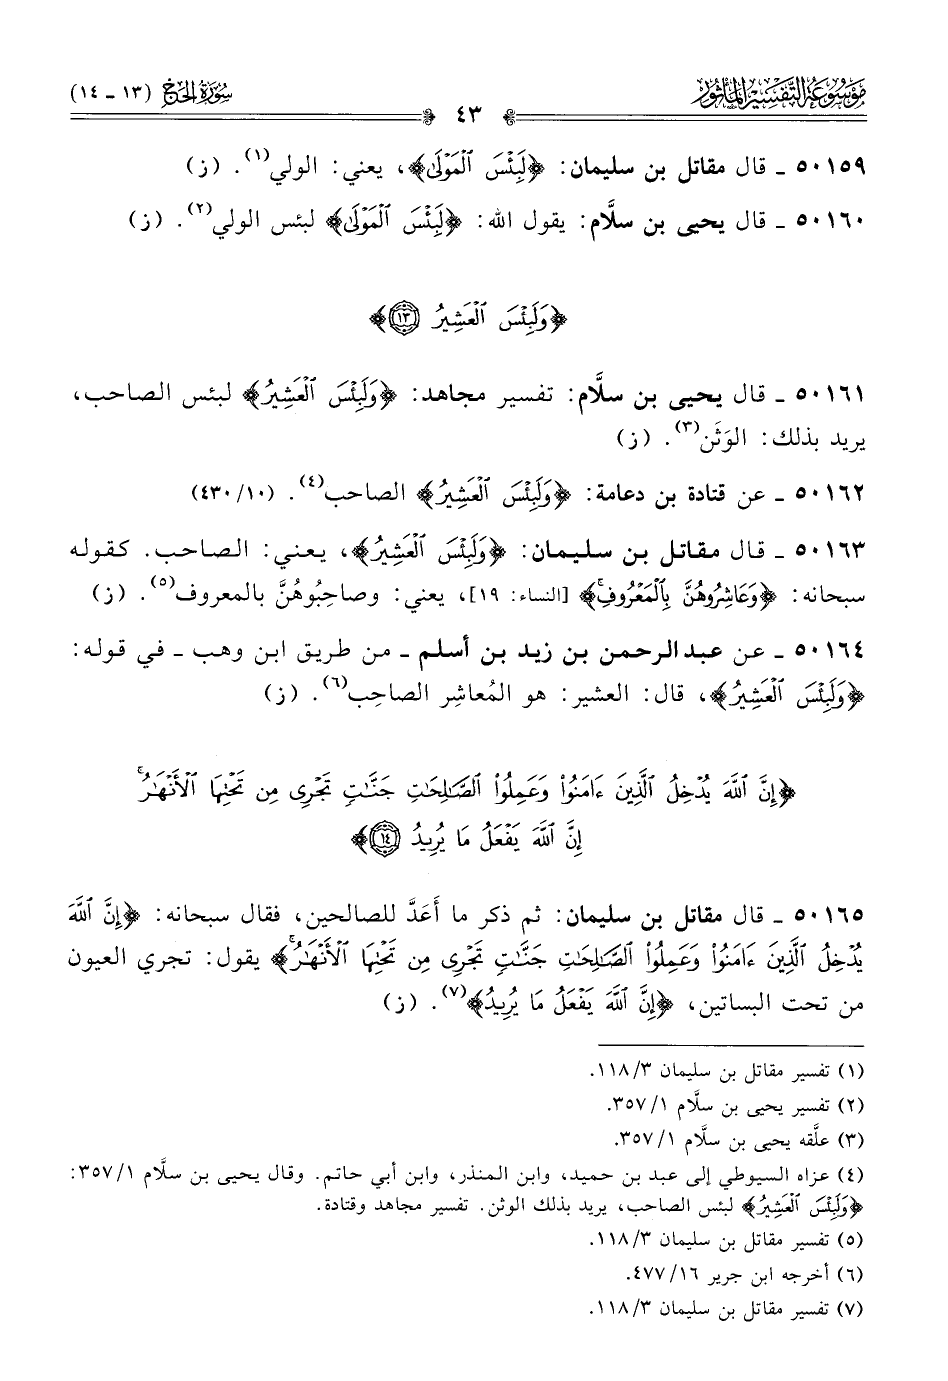 موسوعة التفسير المأثور
٤٣
سورة الحج (١٣ - ١٤)
٥٠١٥٩ - قال مقاتل بن سليمان: ﴿لَبِئۡسَ ٱلۡمَوۡلَىٰ﴾، يعني: الولي(١). (ز)
٥٠١٦٠ - قال يحيى بن سلَّام: يقول الله: ﴿لَبِئۡسَ ٱلۡمَوۡلَىٰ﴾ لبئس الولي(٢). (ز)
﴿وَلَبِئۡسَ ٱلۡعَشِيرُ ١٣﴾
٥٠١٦١ - قال يحيى بن سلَّام: تفسير مجاهد: ﴿وَلَبِئۡسَ ٱلۡعَشِيرُ﴾ لبئس الصاحب،
يريد بذلك: الوَثَن(٣). (ز)
٥٠١٦٢ - عن قتادة بن دعامة: ﴿وَلَبِئۡسَ ٱلۡعَشِيرُ﴾ الصاحب(٤). (٤٣٠/١٠)
٥٠١٦٣ - قال مقاتل بن سليمان: ﴿وَلَبِئۡسَ ٱلۡعَشِيرُ﴾، يعني: الصاحب. كقوله
سبحانه: ﴿وَعَاشِرُوهُنَّ بِٱلۡمَعۡرُوفِۚ﴾ [النساء: ١٩]، يعني: وصاحِبُوهُنَّ بالمعروف(٥). (ز)
٥٠١٦٤ - عن عبد الرحمن بن زيد بن أسلم - من طريق ابن وهب - في قوله:
﴿وَلَبِئۡسَ ٱلۡعَشِيرُ﴾، قال: العشير: هو المُعاشِر الصاحِب(٦). (ز)
﴿إِنَّ ٱللَّهَ يُدۡخِلُ ٱلَّذِينَ ءَامَنُواْ وَعَمِلُواْ ٱلصَّٰلِحَٰتِ جَنَّٰتٖ تَجۡرِي مِن تَحۡتِهَا ٱلۡأَنۡهَٰرُۚ
إِنَّ ٱللَّهَ يَفۡعَلُ مَا يُرِيدُ ١٤﴾
٥٠١٦٥ - قال مقاتل بن سليمان: ثم ذكر ما أَعَدَّ للصالحين، فقال سبحانه: ﴿إِنَّ ٱللَّهَ
يُدۡخِلُ ٱلَّذِينَ ءَامَنُواْ وَعَمِلُواْ ٱلصَّٰلِحَٰتِ جَنَّٰتٖ تَجۡرِي مِن تَحۡتِهَا ٱلۡأَنۡهَٰرُۚ﴾ يقول: تجري العيون
من تحت البساتين، ﴿إِنَّ ٱللَّهَ يَفۡعَلُ مَا يُرِيدُ﴾(٧). (ز)
(١) تفسير مقاتل بن سليمان ١١٨/٣.
(٢) تفسير يحيى بن سلَّام ٣٥٧/١.
(٣) علَّقه يحيى بن سلَّام ٣٥٧/١.
(٤) عزاه السيوطي إلى عبد بن حميد، وابن المنذر، وابن أبي حاتم. وقال يحيى بن سلَّام ٣٥٧/١:
﴿وَلَبِئۡسَ ٱلۡعَشِيرُ﴾ لبئس الصاحب، يريد بذلك الوثن. تفسير مجاهد وقتادة.
(٥) تفسير مقاتل بن سليمان ١١٨/٣.
(٦) أخرجه ابن جرير ٤٧٧/١٦.
(٧) تفسير مقاتل بن سليمان ١١٨/٣.